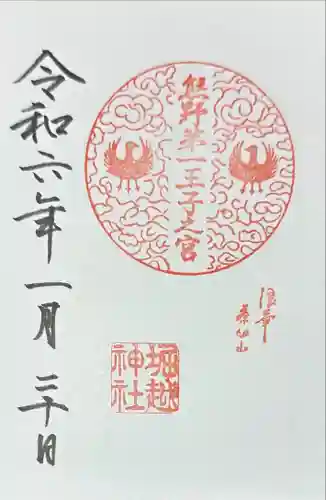 熊野第一王子之宮
堀越
神社
浪華
令和六年一月三十日